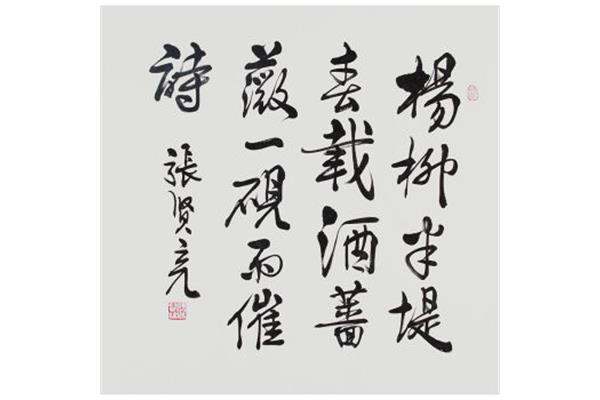 楊柳半堤
春載酒薔
薇一硯雨催
詩
張賢亮